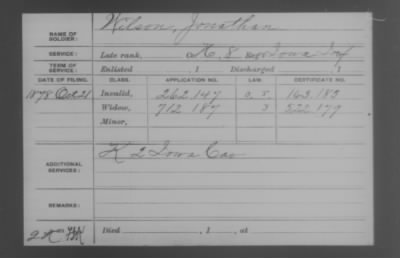 NAME OF SOLDIER: Wilson, Jonathan
SERVICE: Late rank, Co. H, 8 Reg't Iowa Inf
TERM OF SERVICE: Enlisted , 1 Discharged , 1
DATE OF FILING. CLASS. APPLICATION NO. LAW. CERTIFICATE NO.
1878 Oct. 21 Invalid, 262.147 163.183
Widow, 712.187 522.179
Minor,
ADDITIONAL SERVICES: K 2 Iowa Cav
REMARKS:
Died , 1 , at